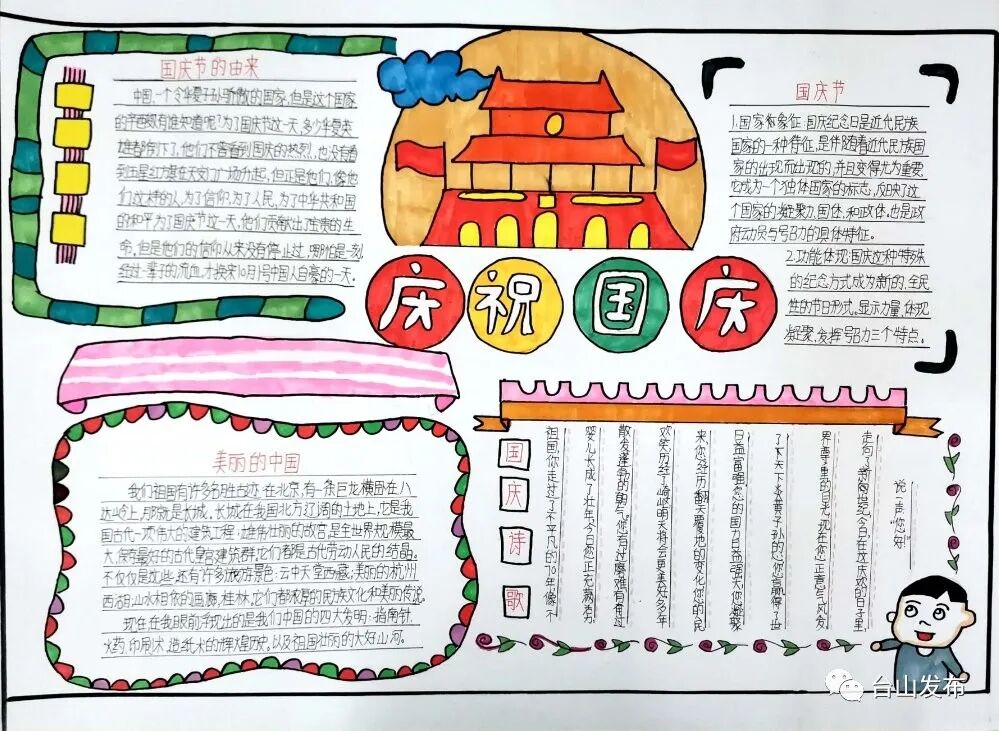 国庆节的由来
中国,一个令华夏子孙骄傲的国家,但是这个国家
的辛酸又有谁知道呢?为了国庆节这一天,多少华夏英
雄都倒下了,他们不曾看到国庆的热烈,也没有看
到五星红旗在天安门广场升起,但正是他们,像他
们这样的人,为了信仰,为了人民,为了中华共和国
的和平,为了国庆节这一天,他们贡献出了宝贵的生
命,但是他们的信仰从来没有停止过,哪怕是一刻,
经过一辈子的流血,才换来10月1号中国人自豪的一天。
庆祝国庆
国庆节
1.国家和象征:国庆纪念日是近代民族
国家的一种特征,是伴随着近代民族国
家的出现而出现的,并且变得尤为重要,
它成为一个独体国家的标志,反映了这
个国家的凝聚力,国体,和政体,也是政
府动员与号召力的具体特征。
2.功能体现:国庆这种特殊
的纪念方式成为新的,全民
性的节日形式,显示力量,体现
凝聚,发挥号召力三个特点。
美丽的中国
我们祖国有许多名胜古迹,在北京,有一条巨龙横卧在八
达岭上,那就是长城,长城在我国北方辽阔的土地上,它是我
国古代一项伟大的建筑工程,雄伟壮丽的故宫,是全世界规模最
大,保存最好的古代皇宫建筑群,它们都是古代劳动人民的结晶。
不仅仅是这些,还有许多旅游景色:云中天堂西藏,美丽的杭州
西湖,山水相依的画廊,桂林,它们都浓厚的民族文化和美丽传说。
现在在我眼前浮现出的是我们中国的四大发明:指南针,
火药,印刷术,造纸术的辉煌历史。以及祖国壮丽的大好山河。
国庆诗歌
说一声"您好!"
走向了新的世纪,今日,在这庆欢的日子里,
界尊重的目光,现在,您正意气风发
了下天下炎黄子孙的心,您赢得了世
日益富强,您的国力日益强大,您凝聚
来,您经历翻天覆地的变化,您的人民
欢笑,历经了崎岖,明天将会更美好,多少年
散发蓬勃的朝气。您有过磨难,有有过
婴儿长成了壮年,今日,您正充满活力
祖国,你走过了不平凡的70年,像不
台山发布